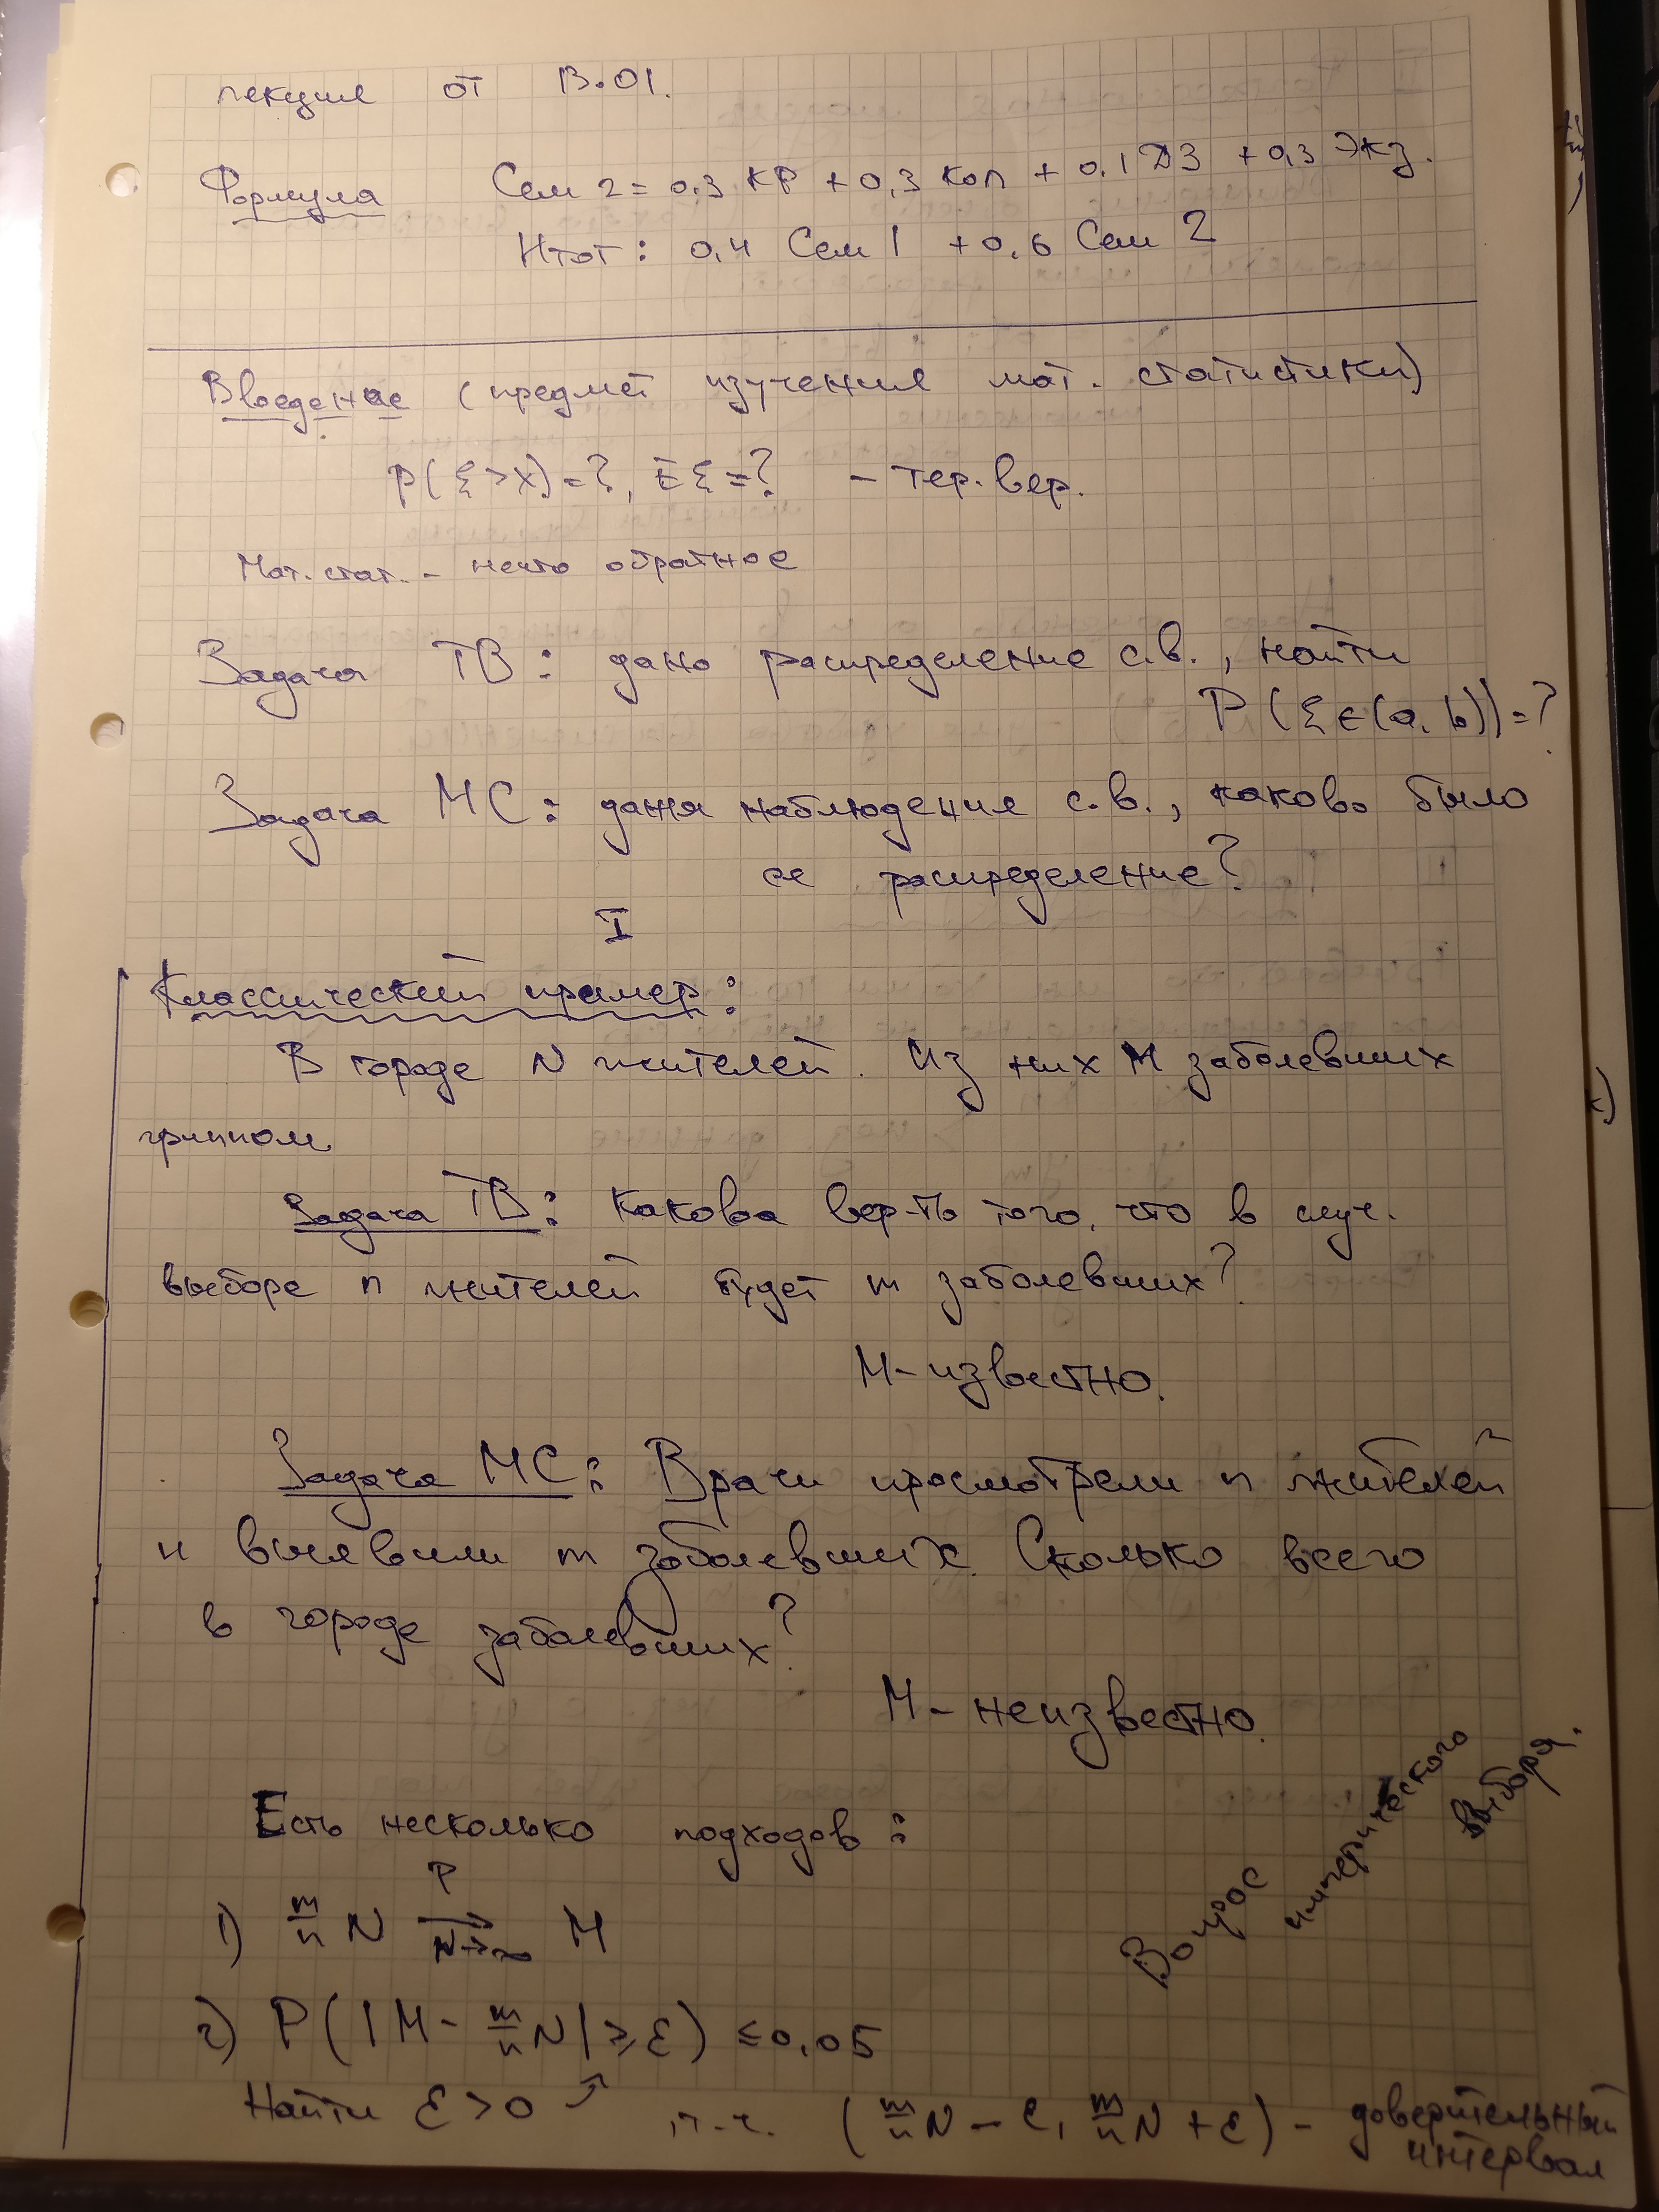 лекция от 13.01.
Формула Сем 2 = 0,3 КР + 0,3 Кол + 0,1 ДЗ + 0,3 Экз.
Итог: 0,4 Сем 1 + 0,6 Сем 2
Введение (предмет изучения мат. статистики)
P(ξ>x)=?, Eξ=? - тер. вер.
Мат. стат. - нечто обратное
Задача ТВ: дано распределение с.в., найти
P(ξ∈(a,b))=?
Задача МС: даны наблюдения с.в., каково было
ее распределение?
I
Классический пример:
В городе N жителей. Из них M заболевших
гриппом.
Задача ТВ: Какова вер-ть того, что в случ.
выборе n жителей будет m заболевших?
M - известно.
Задача МС: Врачи просмотрели n жителей
и выявили m заболевших. Сколько всего
в городе заболевших?
M - неизвестно.
Есть несколько подходов:
1) m/n N →^P_{N→∞} M
2) P(|M - m/n N| ≥ ε) ≤ 0,05
Найти ε>0 ↗ т.ч. (m/n N - ε, m/n N + ε) - доверительный
интервал
Вопрос
эмперического
выбора.